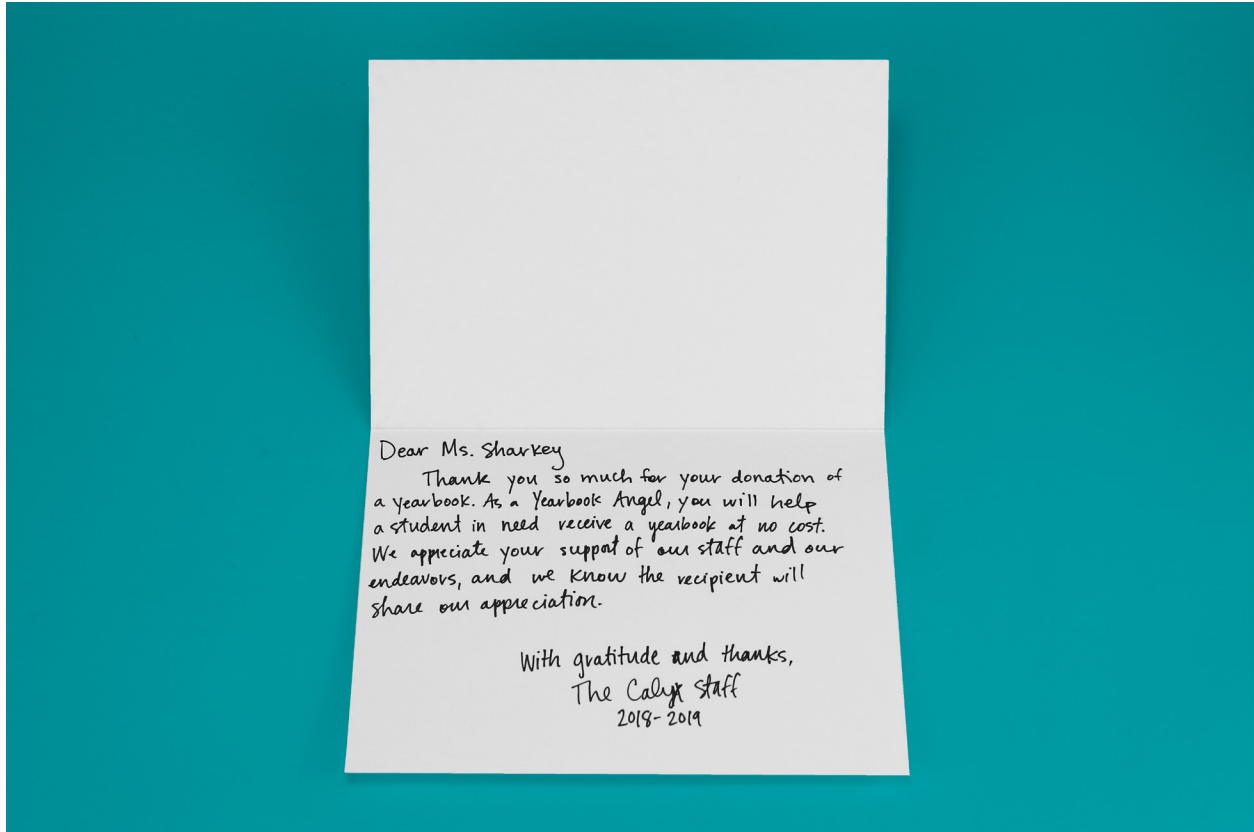 Dear Ms. Sharkey
Thank you so much for your donation of
a yearbook. As a Yearbook Angel, you will help
a student in need receive a yearbook at no cost.
We appreciate your support of our staff and our
endeavors, and we know the recipient will
share our appreciation.
With gratitude and thanks,
The Calyx Staff
2018-2019